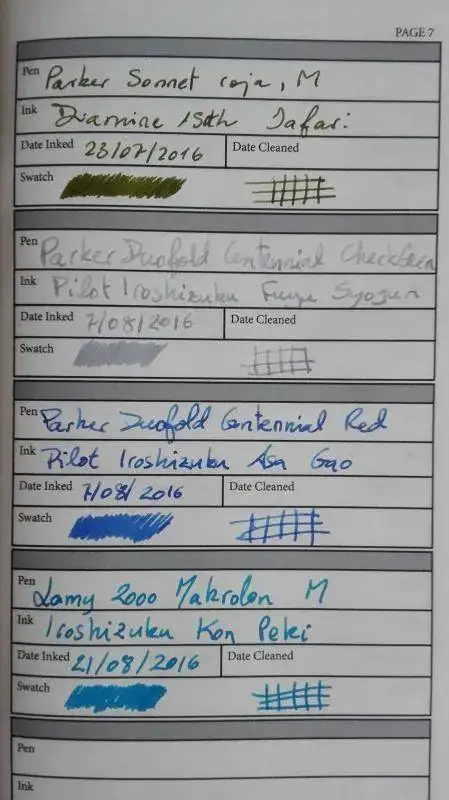 PAGE 7
Pen Parker Sonnet roja, M
Ink Diamine 150th Safari
Date Inked 23/07/2016 Date Cleaned
Swatch
Pen Parker Duofold Centennial Check Green
Ink Pilot Iroshizuku Fuyu Syogun
Date Inked 7/08/2016 Date Cleaned
Swatch
Pen Parker Duofold Centennial Red
Ink Pilot Iroshizuku Asa Gao
Date Inked 7/08/2016 Date Cleaned
Swatch
Pen Lamy 2000 Makrolon M
Ink Iroshizuku Kon Peki
Date Inked 21/08/2016 Date Cleaned
Swatch
Pen
Ink